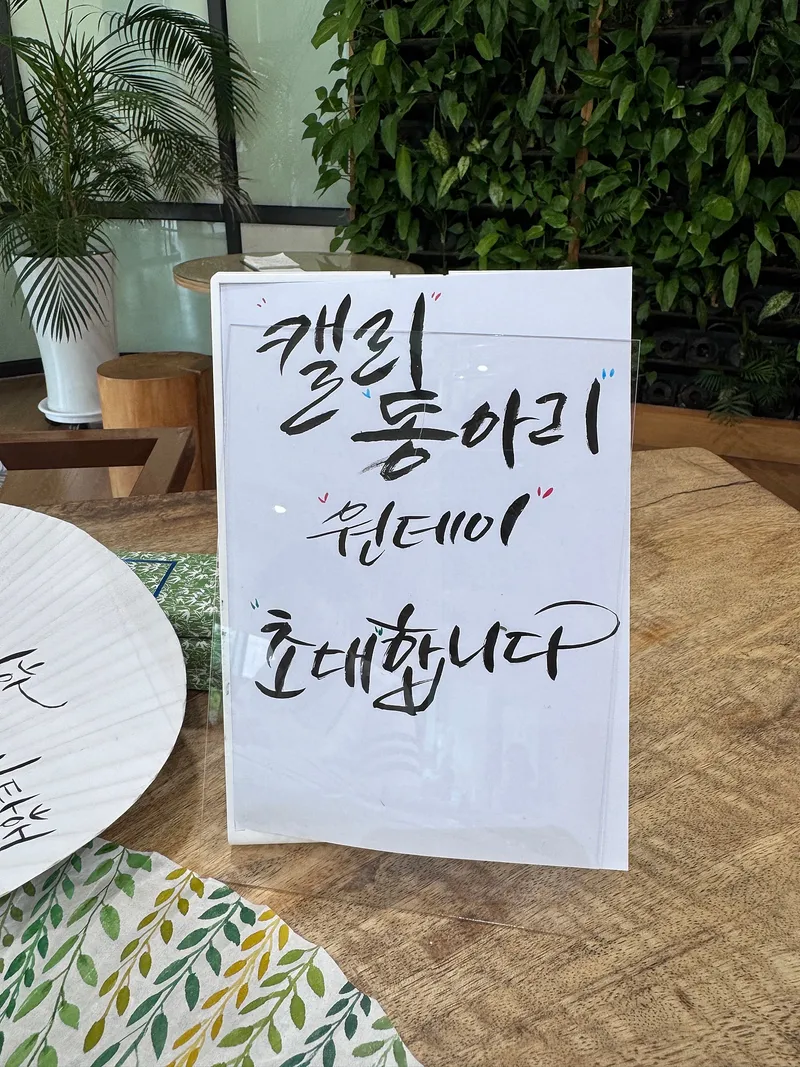 캘리
동아리
원데이
초대합니다